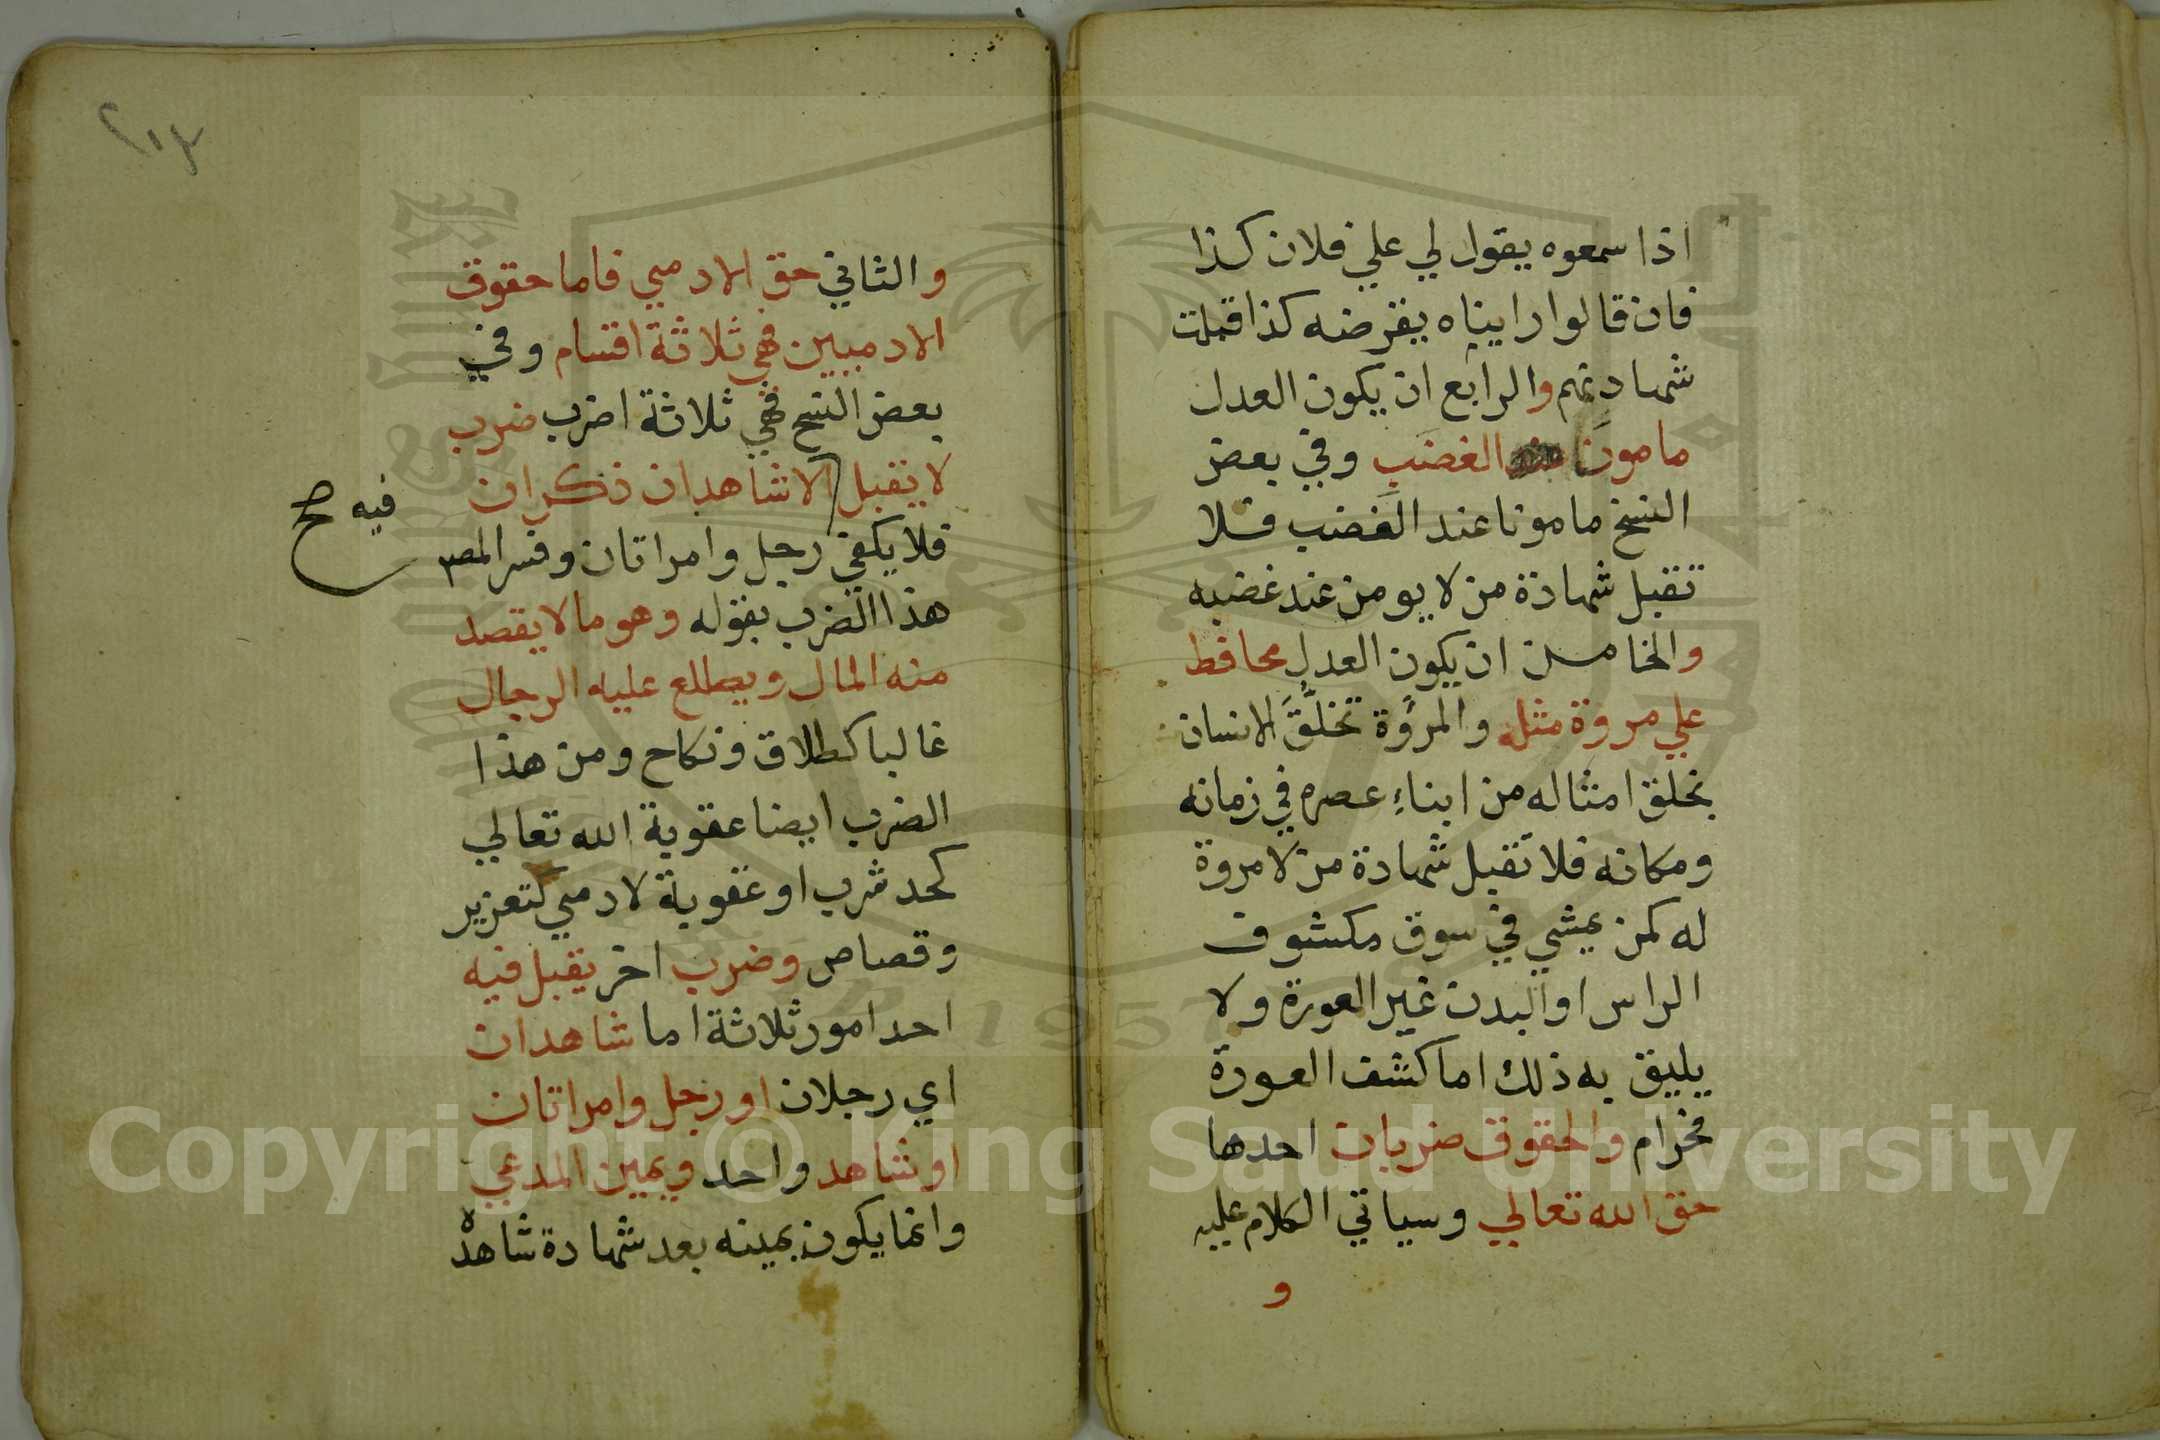 اذا سمعوه يقول لي علي فلان كذا
فان قالوا رايناه يقرضه كذا قبلت
شهادتهم والرابع ان يكون العدل
مامون الغضب وفي بعض
النسخ مامونا عند الغضب فلا
تقبل شهادة من لا يومن عند غضبه
والخامس ان يكون العدل محافظ
علي مروة مثله والمروة تخلق الانسان
بخلق امثاله من ابناء عصره في زمانه
ومكانه فلا تقبل شهادة من لا مروة
له كمن يمشي في سوق مكشوف
الراس او البدن غير العورة ولا
يليق به ذلك اما كشف العورة
فحرام والحقوق ضربان احدها
حق الله تعالي وسياتي الكلام عليه
و
٢٠٣
والثاني حق الادمي فاما حقوق
الادميين فهي ثلاثة اقسام وفي
بعض النسخ فهي ثلاثة اضرب ضرب
لا يقبل الا شاهدان ذكران
فيه صح
فلا يكفي رجل وامراتان وفسر المص
هذا الضرب بقوله وهو ما لا يقصد
منه المال ويطلع عليه الرجال
غالبا كطلاق ونكاح ومن هذا
الضرب ايضا عقوبة الله تعالي
كحد شرب او عقوبة لادمي كتعزير
وقصاص وضرب اخر يقبل فيه
احد امور ثلاثة اما شاهدان
اي رجلان او رجل وامراتان
او شاهد واحد ويمين المدعي
وانما يكون يمينه بعد شهادة شاهده
1957
Copyright © King Saud University